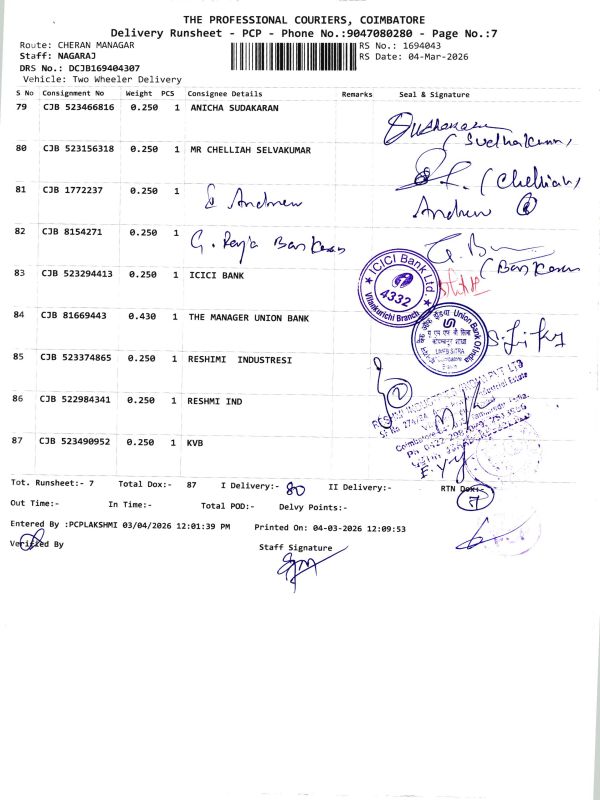 THE PROFESSIONAL COURIERS, COIMBATORE
Delivery Runsheet - PCP - Phone No.:9047080280 - Page No.:7
Route: CHERAN MANAGAR
RS No.: 1694043
Staff: NAGARAJ
RS Date: 04-Mar-2026
DRS No.: DCJB169404307
Vehicle: Two Wheeler Delivery
S No Consignment No Weight PCS Consignee Details Remarks Seal & Signature
79 CJB 523466816 0.250 1 ANICHA SUDAKARAN
(Sudhakaran)
80 CJB 523156318 0.250 1 MR CHELLIAH SELVAKUMAR
(Chelliah)
81 CJB 1772237 0.250 1 Andrew
Andrew
82 CJB 8154271 0.250 1 G. Raja Baskaran
G. B
(Baskaran
83 CJB 523294413 0.250 1 ICICI BANK
ICICI Bank Ltd
4332
Vilankurichi Branch
84 CJB 81669443 0.430 1 THE MANAGER UNION BANK
Union Bank Of India
85 CJB 523374865 0.250 1 RESHIMI INDUSTRESI
2
86 CJB 522984341 0.250 1 RESHMI IND
RESHMI INDUSTRIES INDIA PVT LTD
Industrial Estate
Coimbatore
87 CJB 523490952 0.250 1 KVB
Tot. Runsheet:- 7 Total Dox:- 87 I Delivery:- 80 II Delivery:- RTN Dox:-
7
Out Time:- In Time:- Total POD:- Delvy Points:-
Entered By :PCPLAKSHMI 03/04/2026 12:01:39 PM Printed On: 04-03-2026 12:09:53
Verified By
Staff Signature